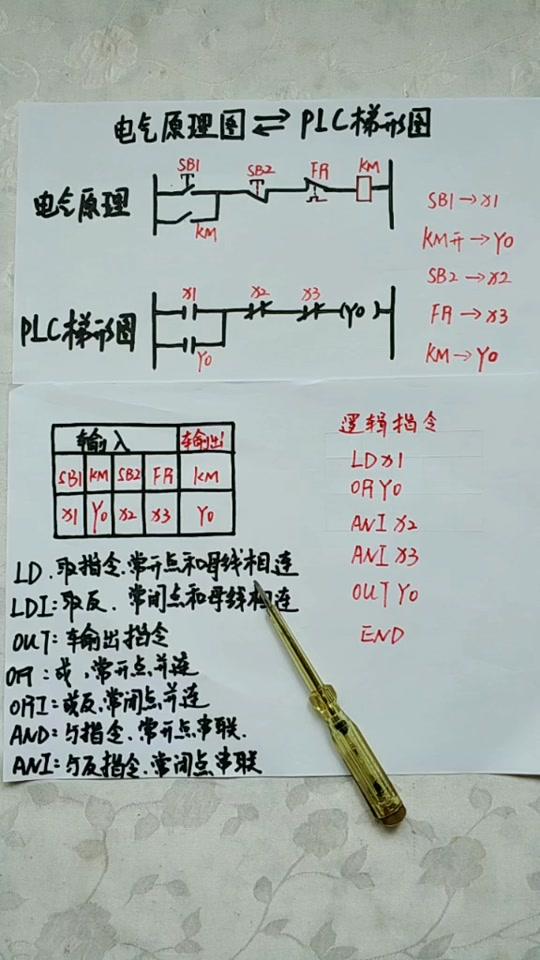 电气原理图⇌PLC梯形图
SB1 SB2 FR KM
电气原理
KM
SB1→X1
KM开→Y0
SB2→X2
FR→X3
KM→Y0
X1 X2 X3 (Y0)
PLC梯形图
Y0
输入 输出
SB1 KM SB2 FR KM
X1 Y0 X2 X3 Y0
逻辑指令
LD X1
OR Y0
ANI X2
ANI X3
OUT Y0
END
LD.取指令.常开点和母线相连
LDI:取反、常闭点和母线相连
OUT:输出指令
OR:或,常开点并连
ORI:或反、常闭点并连
AND:与指令、常开点串联.
ANI:与反指令、常闭点串联